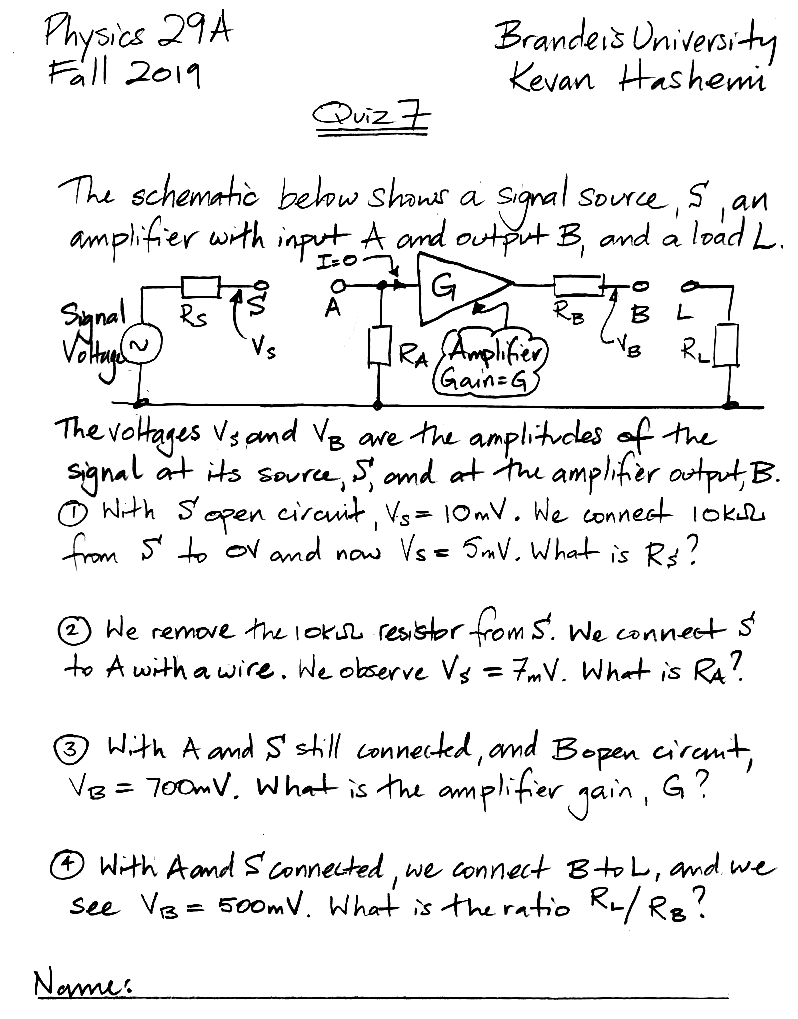 Physics 29A
Brandeis University
Fall 2019
Kevan Hashemi
Quiz 7
The schematic below shows a signal source, S, an
amplifier with input A and output B, and a load L.
I=0
G
S
A
RS
VS
Signal
Voltage
RA
Amplifier
Gain=G
RB
B
VB
L
RL
The voltages VS and VB are the amplitudes of the
signal at its source, S, and at the amplifier output, B.
① With S open circuit, VS = 10mV. We connect 10kΩ
from S to 0V and now VS = 5mV. What is RS?
② We remove the 10kΩ resistor from S. We connect S
to A with a wire. We observe VS = 7mV. What is RA?
③ With A and S still connected, and B open circuit,
VB = 700mV. What is the amplifier gain, G?
④ With A and S connected, we connect B to L, and we
see VB = 500mV. What is the ratio RL/RB?
Name: